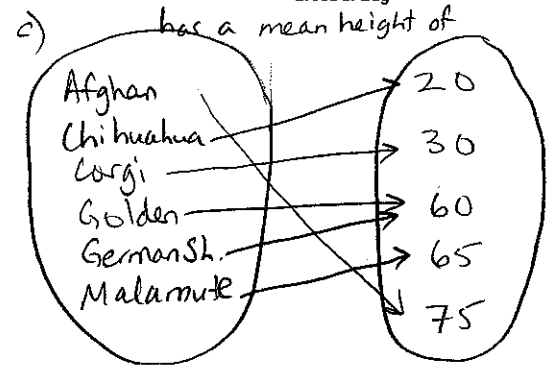 c) has a mean height of
Afghan
Chihuahua
Corgi
Golden
German Sh.
Malamute
20
30
60
65
75